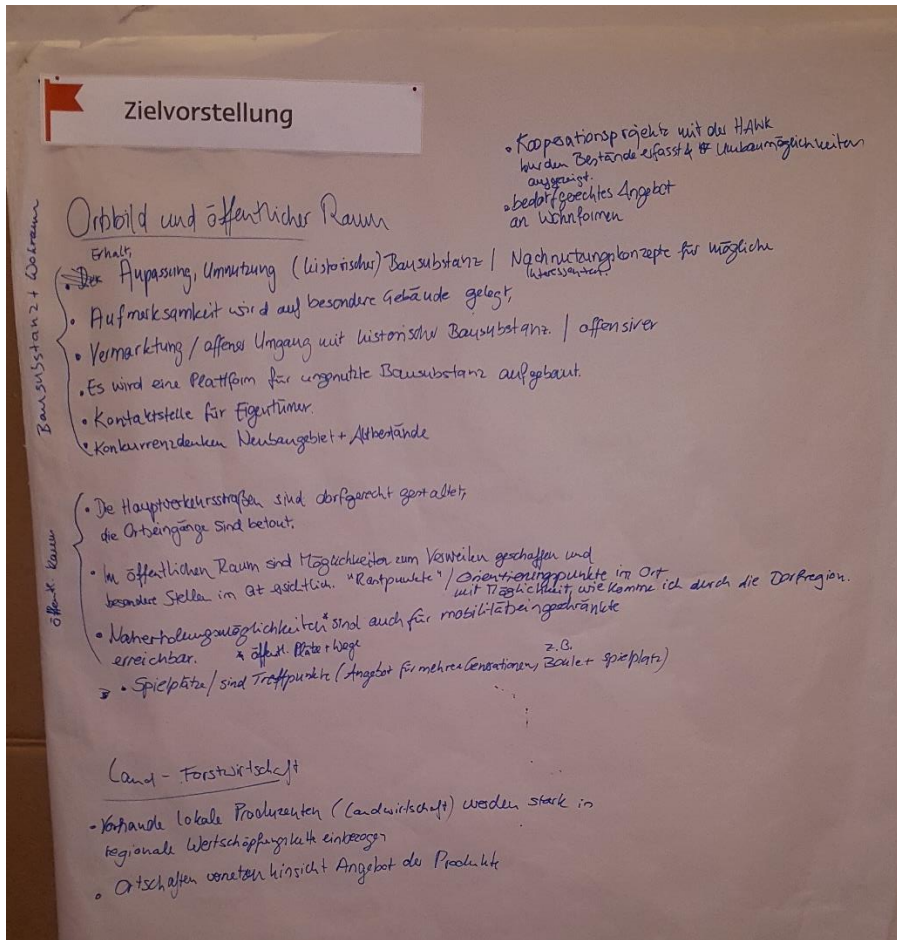 Zielvorstellung
• Kooperationsprojekte mit der HAWK
wurden Bestände erfasst & Umbaumöglichkeiten
aufgezeigt.
• bedarfgerechtes Angebot
an Wohnformen
Ortsbild und öffentlicher Raum
Bausubstanz + Wohnraum
Erhalt,
• Anpassung, Umnutzung (historischer) Bausubstanz / Nachnutzungskonzepte für mögliche
Interessenten.
• Aufmerksamkeit wird auf besondere Gebäude gelegt,
• Vermarktung / offener Umgang mit historischer Bausubstanz. / offensiver
• Es wird eine Plattform für ungenutzte Bausubstanz aufgebaut.
• Kontaktstelle für Eigentümer.
• Konkurrenzdenken Neubaugebiet + Altbestände
öffentl. Raum
• Die Hauptverkehrsstraßen sind dorfgerecht gestaltet,
die Ortseingänge sind betont.
• Im öffentlichen Raum sind Möglichkeiten zum Verweilen geschaffen und
besondere Stellen im Ort "Rastpunkte" / Orientierungspunkte im Ort
mit Möglichkeit, wie komme ich durch die Dorfregion.
• Naherholungsmöglichkeiten* sind auch für mobilitätseingeschränkte
erreichbar. * öffentl. Plätze + Wege
• Spielplätze / sind Treffpunkte (Angebot für mehrere Generationen, z.B. Boule + Spielplatz)
Land - Forstwirtschaft
• Vorhande lokale Produzenten (Landwirtschaft) werden stark in
regionale Wertschöpfungskette einbezogen
• Ortschaften vernetzen hinsicht Angebot der Produkte